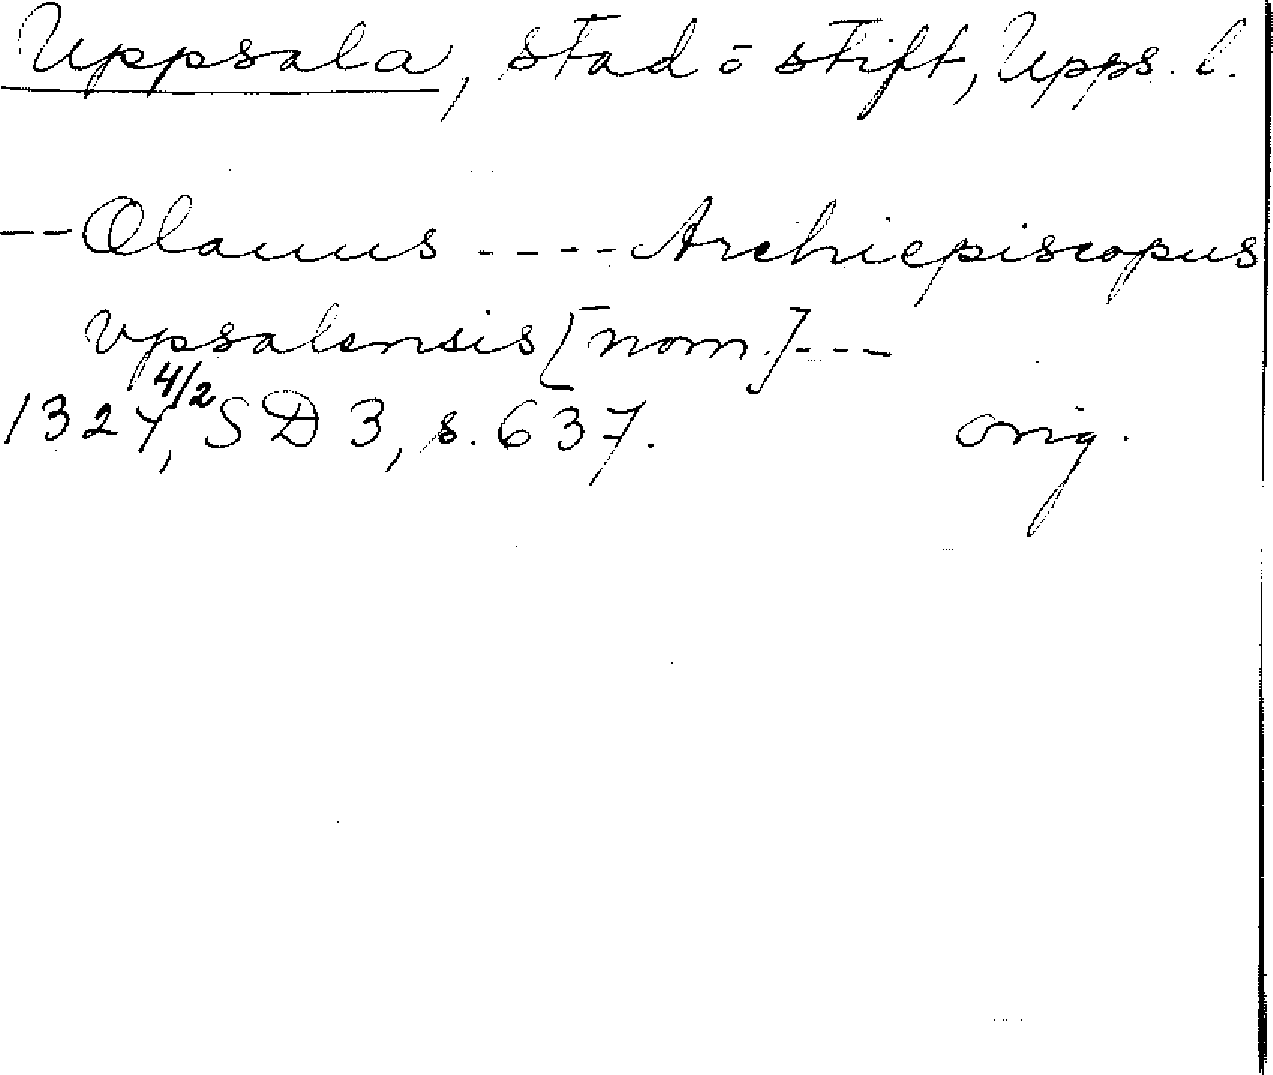 Uppsala, stad o stift, Upps. l.
-- Olauus ---- Archiepiscopus
vpsalensis [nom.] ---
1327 4/2, SD 3, s. 637. orig.